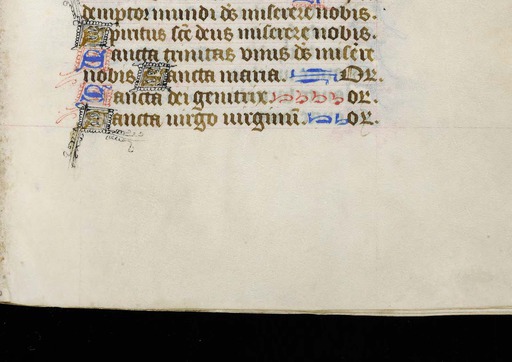 demptor mundi ds miserere nobis.
Spiritus sce deus miserere nobis.
Sancta trinitas unus ds misere
nobis Sancta maria. OR.
Sancta dei genitrix. OR.
Sancta uirgo uirginu. OR.